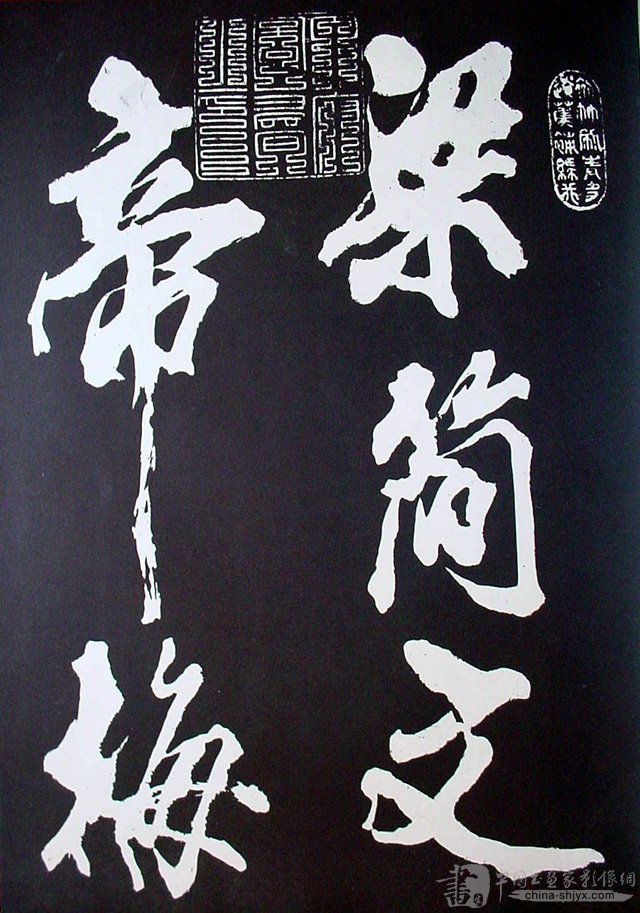 梁简文
帝梅
書 中国书画家影像網
china-shjyx.com